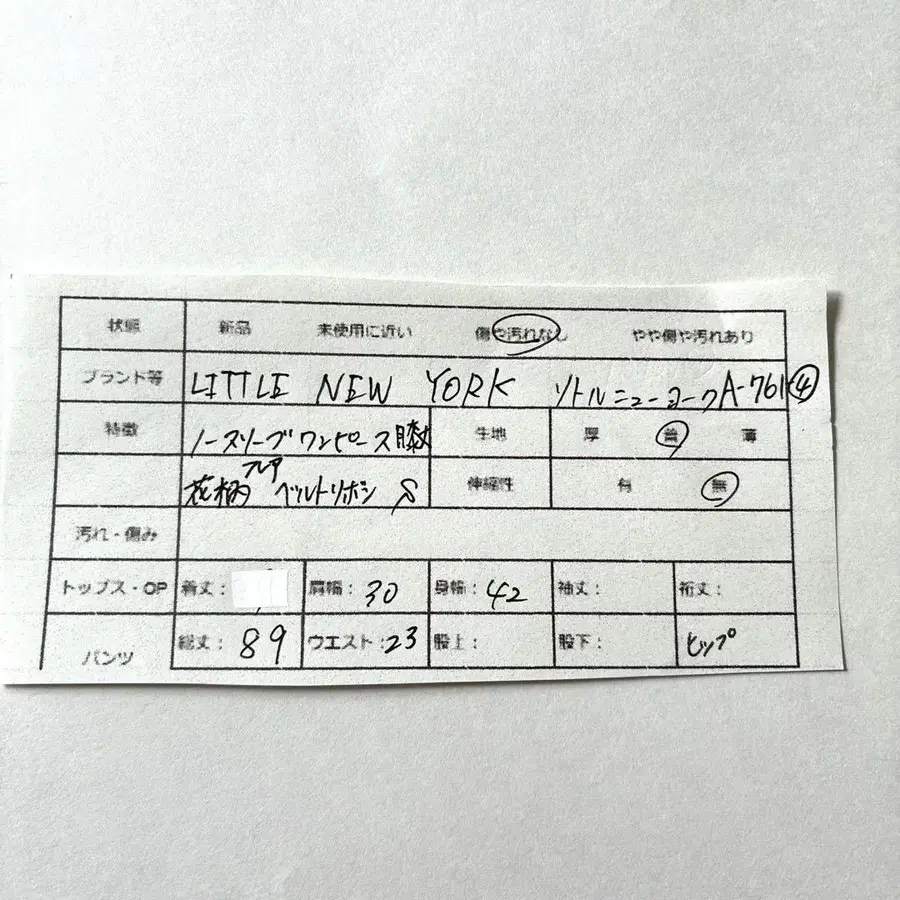 状態 新品 未使用に近い 傷や汚れなし やや傷や汚れあり
ブランド等 LITTLE NEW YORK リトルニューヨーク A-761 ④
特徴 ノースリーブワンピース膝丈 生地 厚 普 薄
フレア
花柄 ベルトリボン 伸縮性 有 無
汚れ・傷み
トップス・OP 着丈： 肩幅：30 身幅：42 袖丈： 裄丈：
パンツ 総丈：89 ウエスト：23 股上： 股下： ヒップ